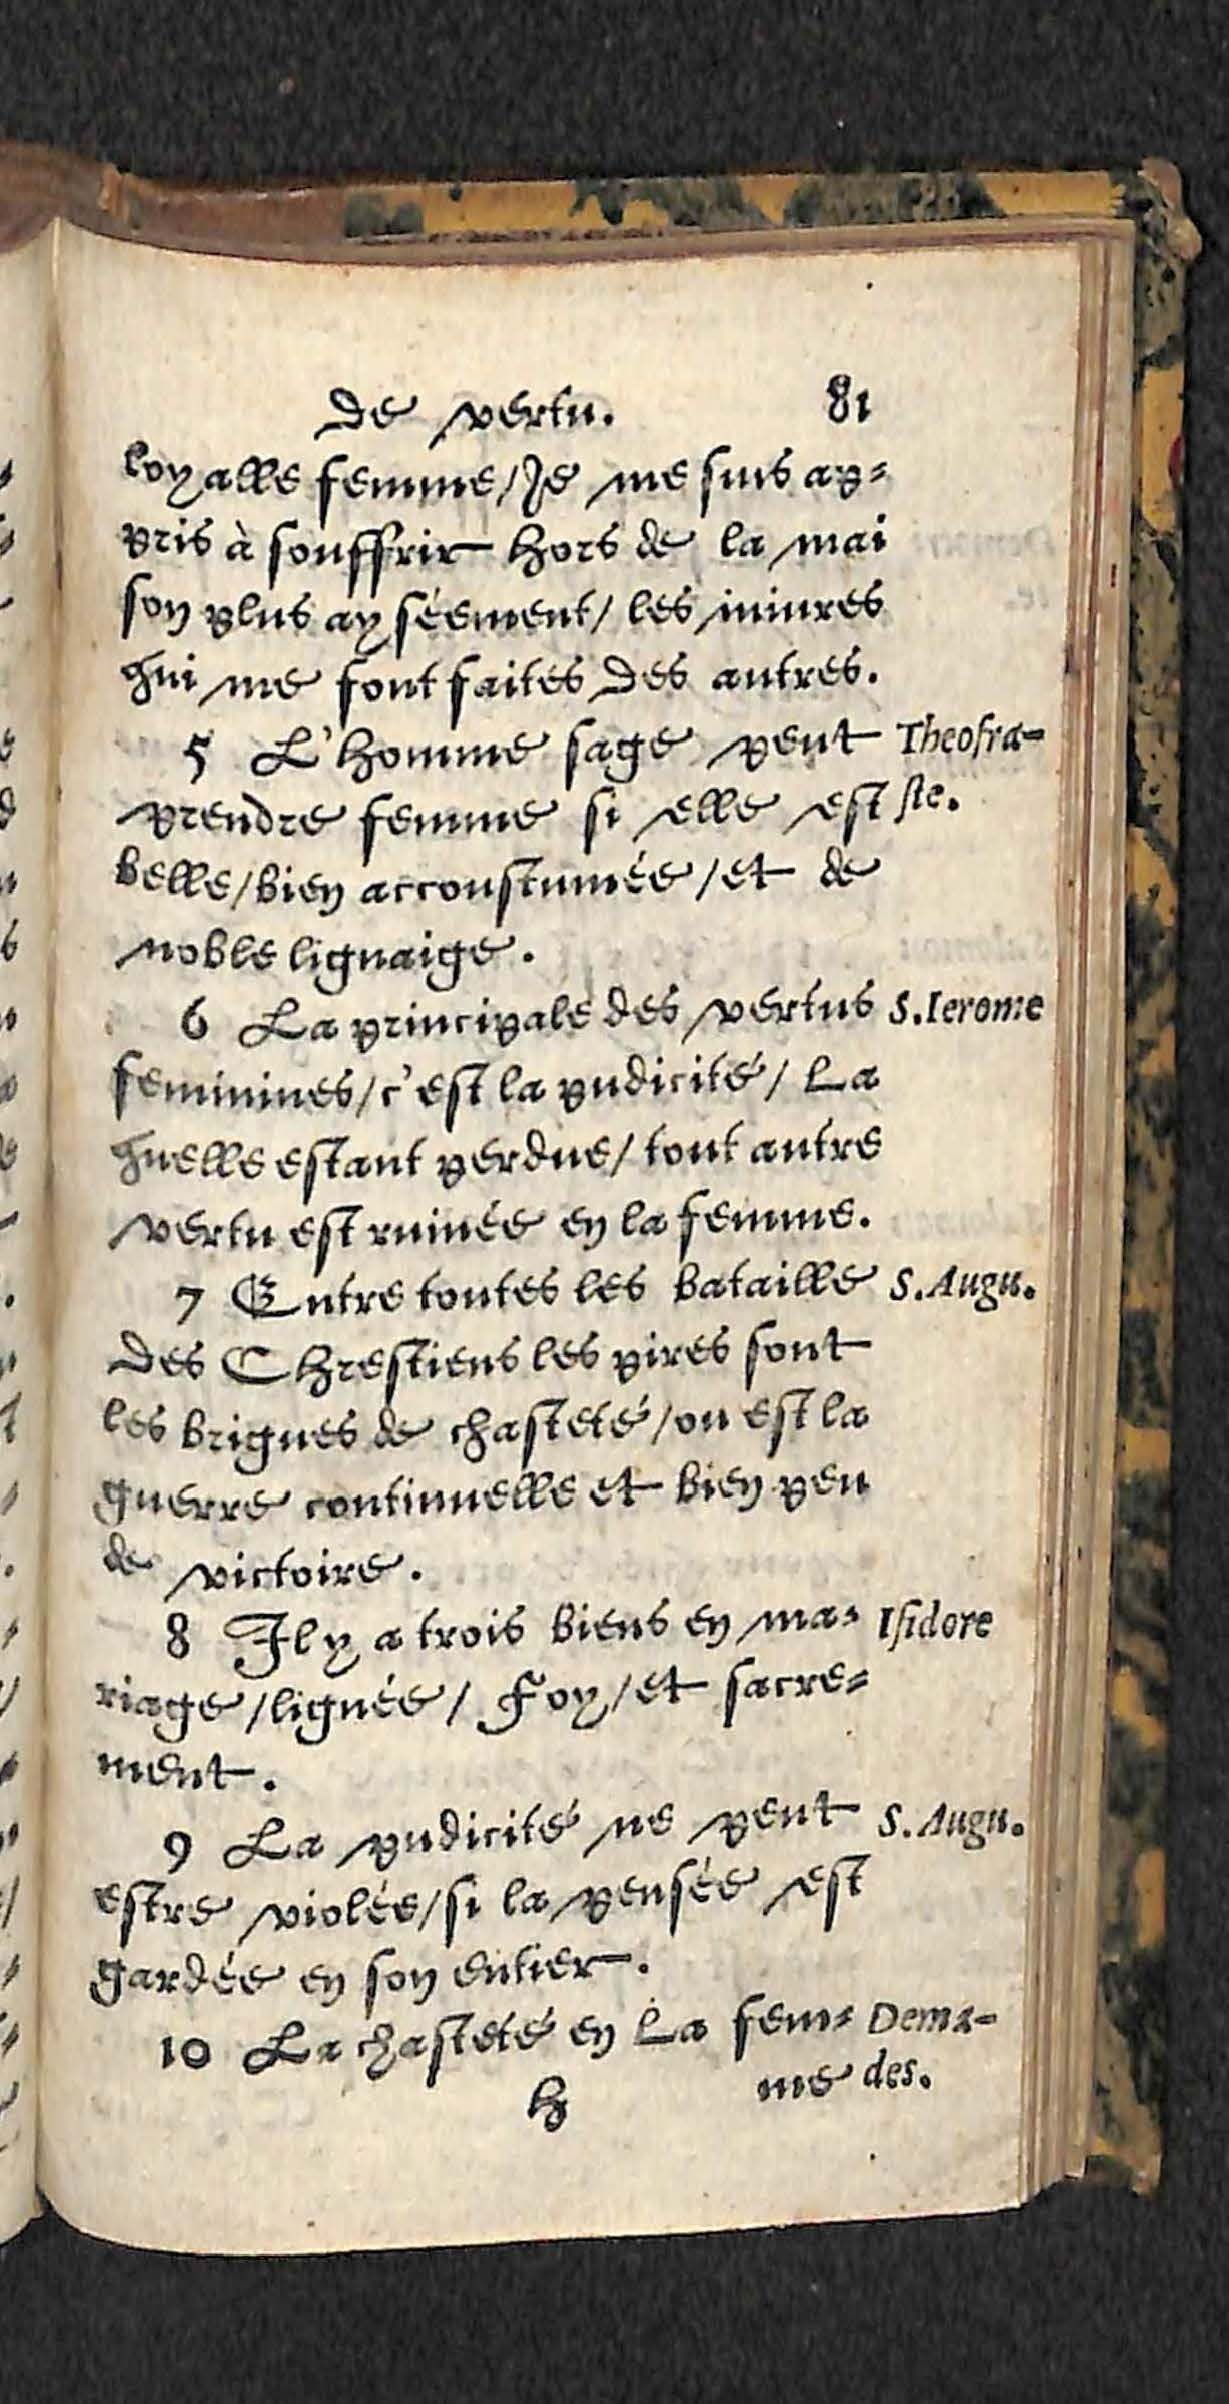 de vertu. 81
loyalle femme/Je me suis ap=
pris à souffrir hors de la mai
son plus aysément/ les iniures
qui me sont faites des autres.
5 L'homme sage peut Theofra-
prendre femme si elle est ste.
belle/bien accoustumée/et de
noble lignaige.
6 La principale des vertus S.Ierome
feminines/c'est la pudicité/ La
quelle estant perdue/ tout autre
vertu est ruinée en la femme.
7 Entre toutes les bataille S.Augu.
des Chrestiens les pires sont
les brigues de chasteté/ou est la
guerre continuelle et bien peu
de victoire.
8 Il y a trois biens en ma= Isidore
riage/lignée/ Foy/et sacre=
ment.
9 La pudicité ne peut S.Augu.
estre violée/si la pensée est
gardée en son entier.
10 La chasteté en La fem= Dema-
h me des.